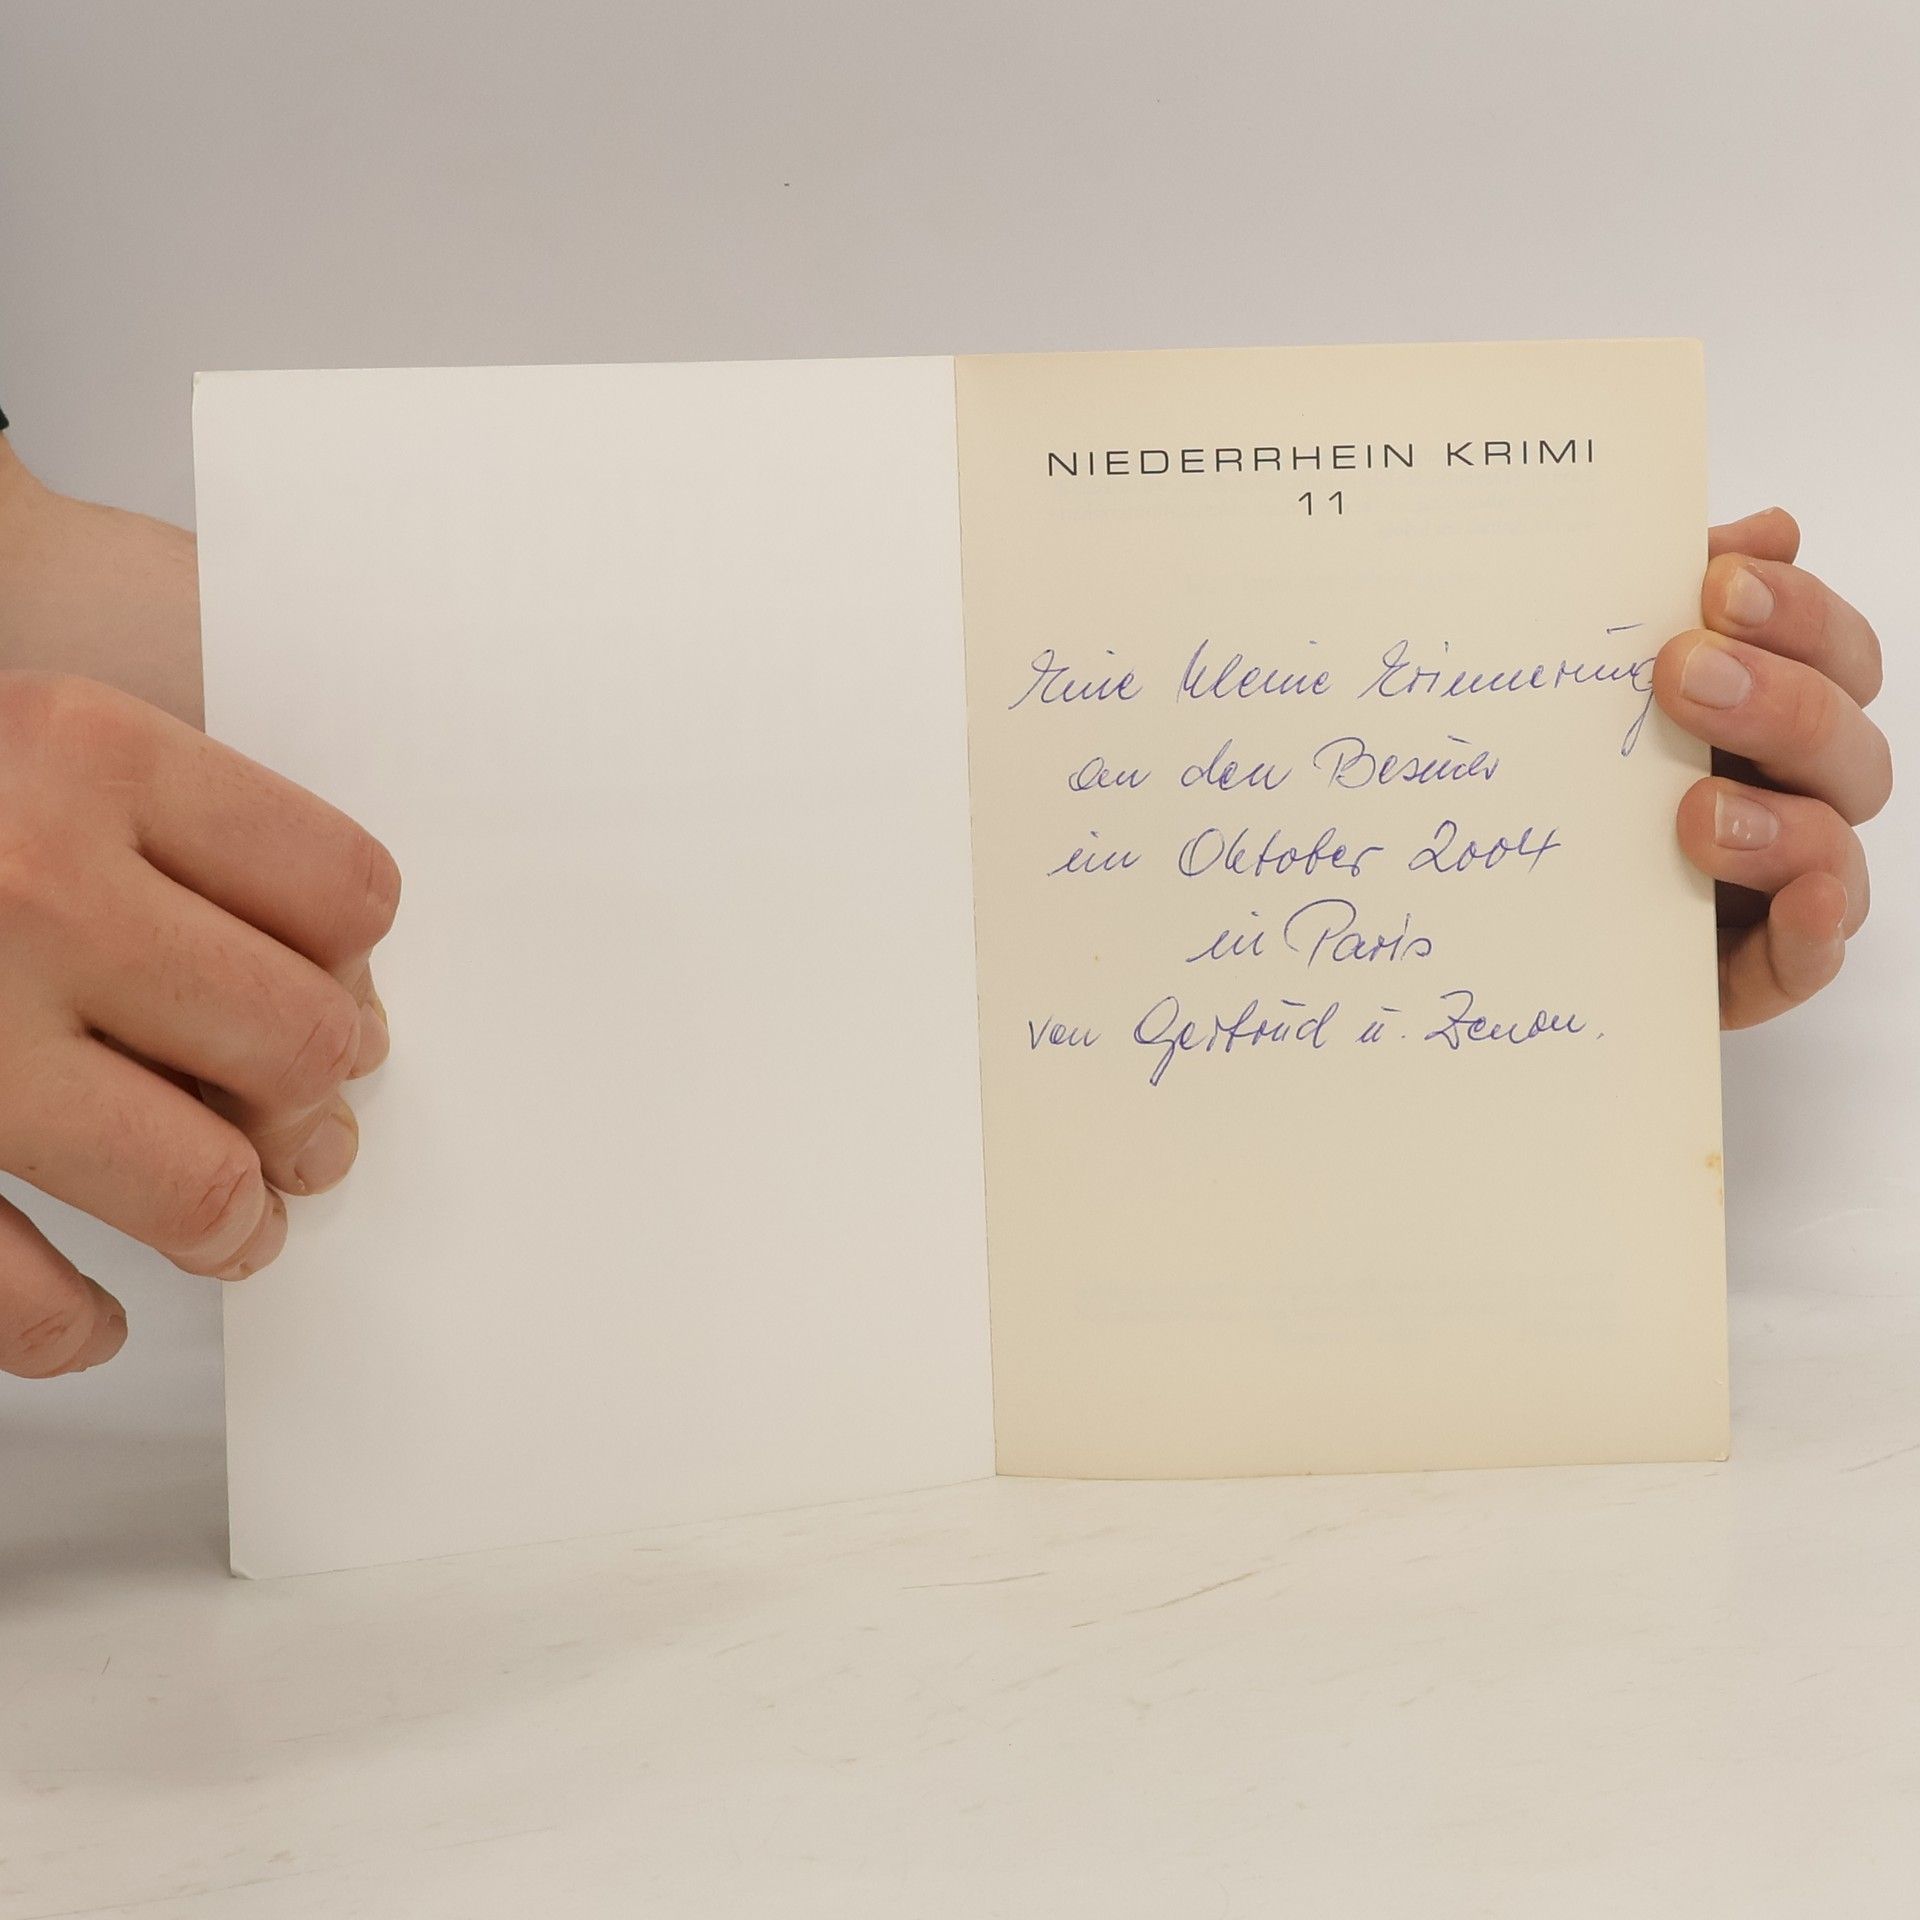 NIEDERRHEIN KRIMI
11
Eine kleine Erinnerung
an den Besuch
im Oktober 2004
in Paris
von Gertrud u. Zenon.